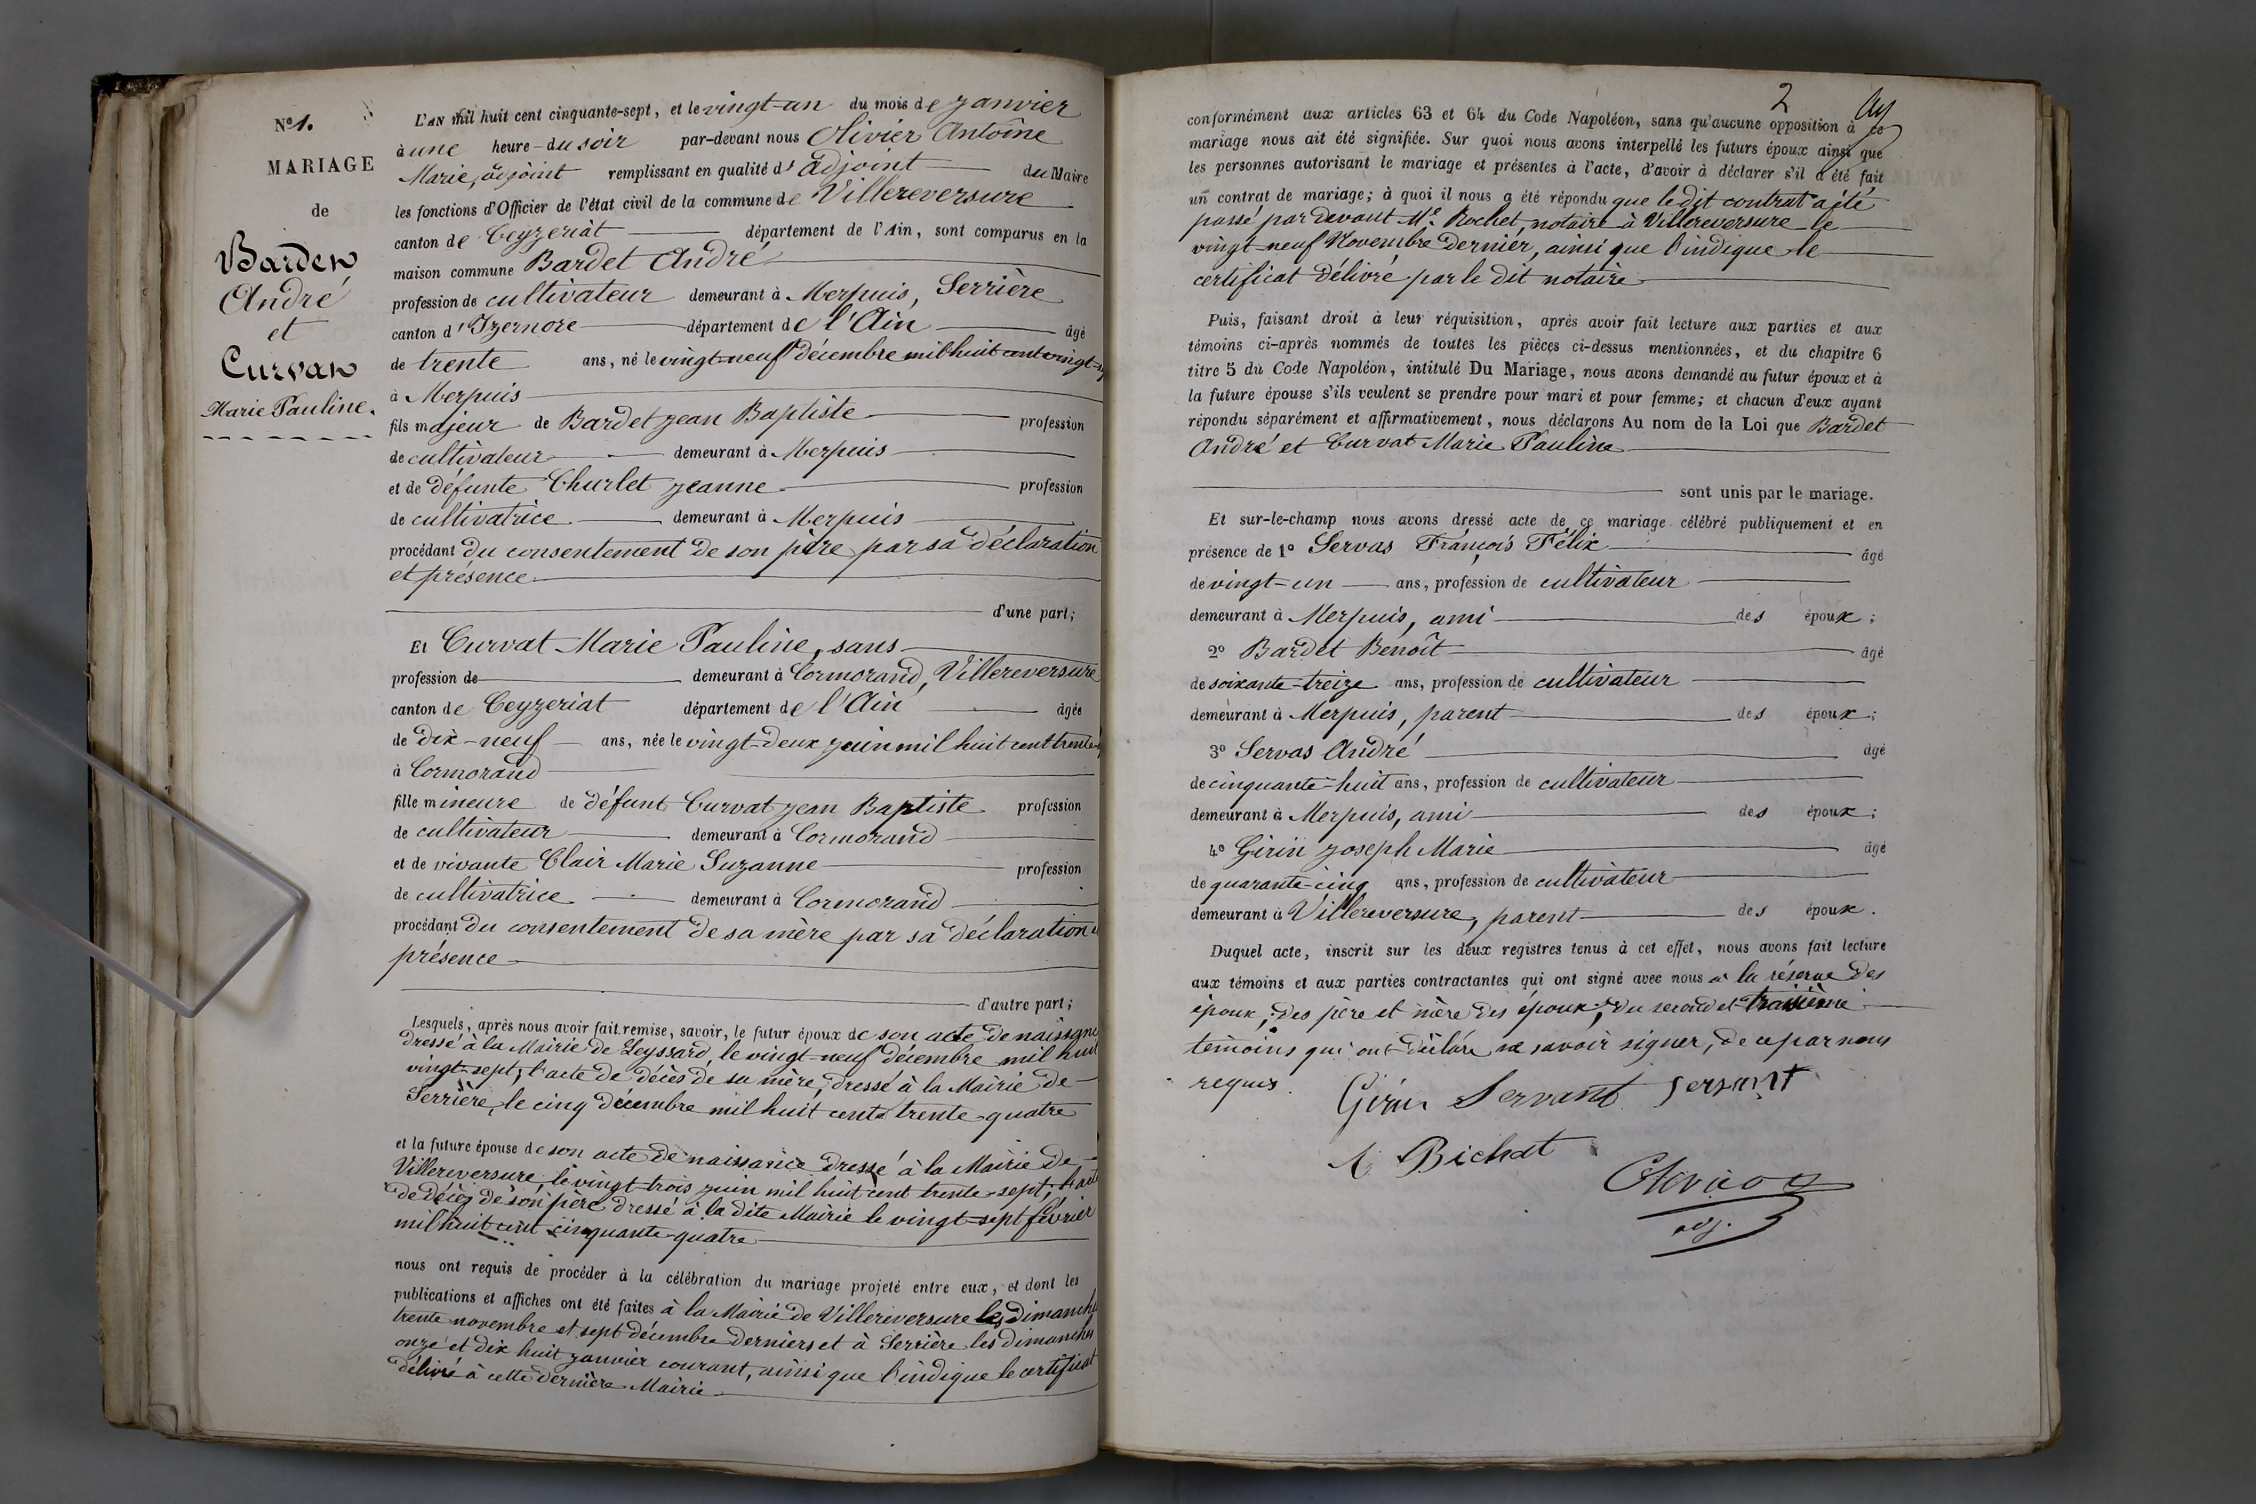 N° 1.
MARIAGE
de
Bardet
André
et
Curvat
Marie Pauline.
L'AN mil huit cent cinquante-sept, et le vingt-un du mois de janvier
à une heure du soir par-devant nous Olivier Antoine
Marie, adjoint remplissant en qualité d'adjoint du Maire
les fonctions d'Officier de l'état civil de la commune de Villereversure
canton de Ceyzeriat département de l'Ain, sont comparus en la
maison commune Bardet André
profession de cultivateur demeurant à Merpuis, Serrière
canton d'Izernore département de l'Ain âgé
de trente ans, né le vingt-neuf décembre mil huit cent vingt-
à Merpuis
fils majeur de Bardet Jean Baptiste profession
de cultivateur demeurant à Merpuis
et de défunte Churlet Jeanne profession
de cultivatrice demeurant à Merpuis
procédant du consentement de son père par sa déclaration
et présence
d'une part;
Et Curvat Marie Pauline, sans
profession de demeurant à Cormorand, Villereversure
canton de Ceyzeriat département de l'Ain âgée
de dix-neuf ans, née le vingt-deux juin mil huit cent trente-
à Cormorand
fille mineure de défunt Curvat Jean Baptiste profession
de cultivateur demeurant à Cormorand
et de vivante Clair Marie Suzanne profession
de cultivatrice demeurant à Cormorand
procédant du consentement de sa mère par sa déclaration
présence
d'autre part;
Lesquels, après nous avoir fait remise, savoir, le futur époux de son acte de naissanc
dressé à la Mairie de Leyssard, le vingt-neuf décembre mil huit
vingt-sept; l'acte de décès de sa mère, dressé à la Mairie de
Serrière, le cinq décembre mil huit cent trente-quatre
et la future épouse de son acte de naissance dressé à la Mairie de
Villereversure, le vingt-trois juin mil huit cent trente-sept; l'acte
de décès de son père dressé à la dite Mairie le vingt-sept février
mil huit cent cinquante-quatre
nous ont requis de procéder à la célébration du mariage projeté entre eux, et dont les
publications et affiches ont été faites à la Mairie de Villereversure les dimanch
trente novembre et sept décembre derniers et à Serrière les dimanches
onze et dix huit janvier courant, ainsi que l'indique le certificat
délivré à cette dernière Mairie
2
conformément aux articles 63 et 64 du Code Napoléon, sans qu'aucune opposition à ce
mariage nous ait été signifiée. Sur quoi nous avons interpellé les futurs époux ainsi que
les personnes autorisant le mariage et présentes à l'acte, d'avoir à déclarer s'il a été fait
un contrat de mariage; à quoi il nous a été répondu que le dit contrat a été
passé par devant Me. Rochet, notaire à Villereversure le
vingt neuf Novembre dernier, ainsi que l'indique le
certificat délivré par le dit notaire
Puis, faisant droit à leur réquisition, après avoir fait lecture aux parties et aux
témoins ci-après nommés de toutes les pièces ci-dessus mentionnées, et du chapitre 6
titre 5 du Code Napoléon, intitulé Du Mariage, nous avons demandé au futur époux et à
la future épouse s'ils veulent se prendre pour mari et pour femme; et chacun d'eux ayant
répondu séparément et affirmativement, nous déclarons Au nom de la Loi que Bardet
André et Curvat Marie Pauline
sont unis par le mariage.
Et sur-le-champ nous avons dressé acte de ce mariage célébré publiquement et en
présence de 1° Servas François Félix âgé
de vingt-un ans, profession de cultivateur
demeurant à Merpuis, ami des époux;
2° Bardet Benoît âgé
de soixante-treize ans, profession de cultivateur
demeurant à Merpuis, parent des époux;
3° Servas André âgé
de cinquante-huit ans, profession de cultivateur
demeurant à Merpuis, ami des époux;
4° Girin Joseph Marie âgé
de quarante-cinq ans, profession de cultivateur
demeurant à Villereversure, parent des époux.
Duquel acte, inscrit sur les deux registres tenus à cet effet, nous avons fait lecture
aux témoins et aux parties contractantes qui ont signé avec nous à la réserve des
époux, des père et mère des époux, du second et troisième
témoins qui ont déclaré ne savoir signer, de ce par nous
requis.
Girin Servant Servant
Bichat
adj.